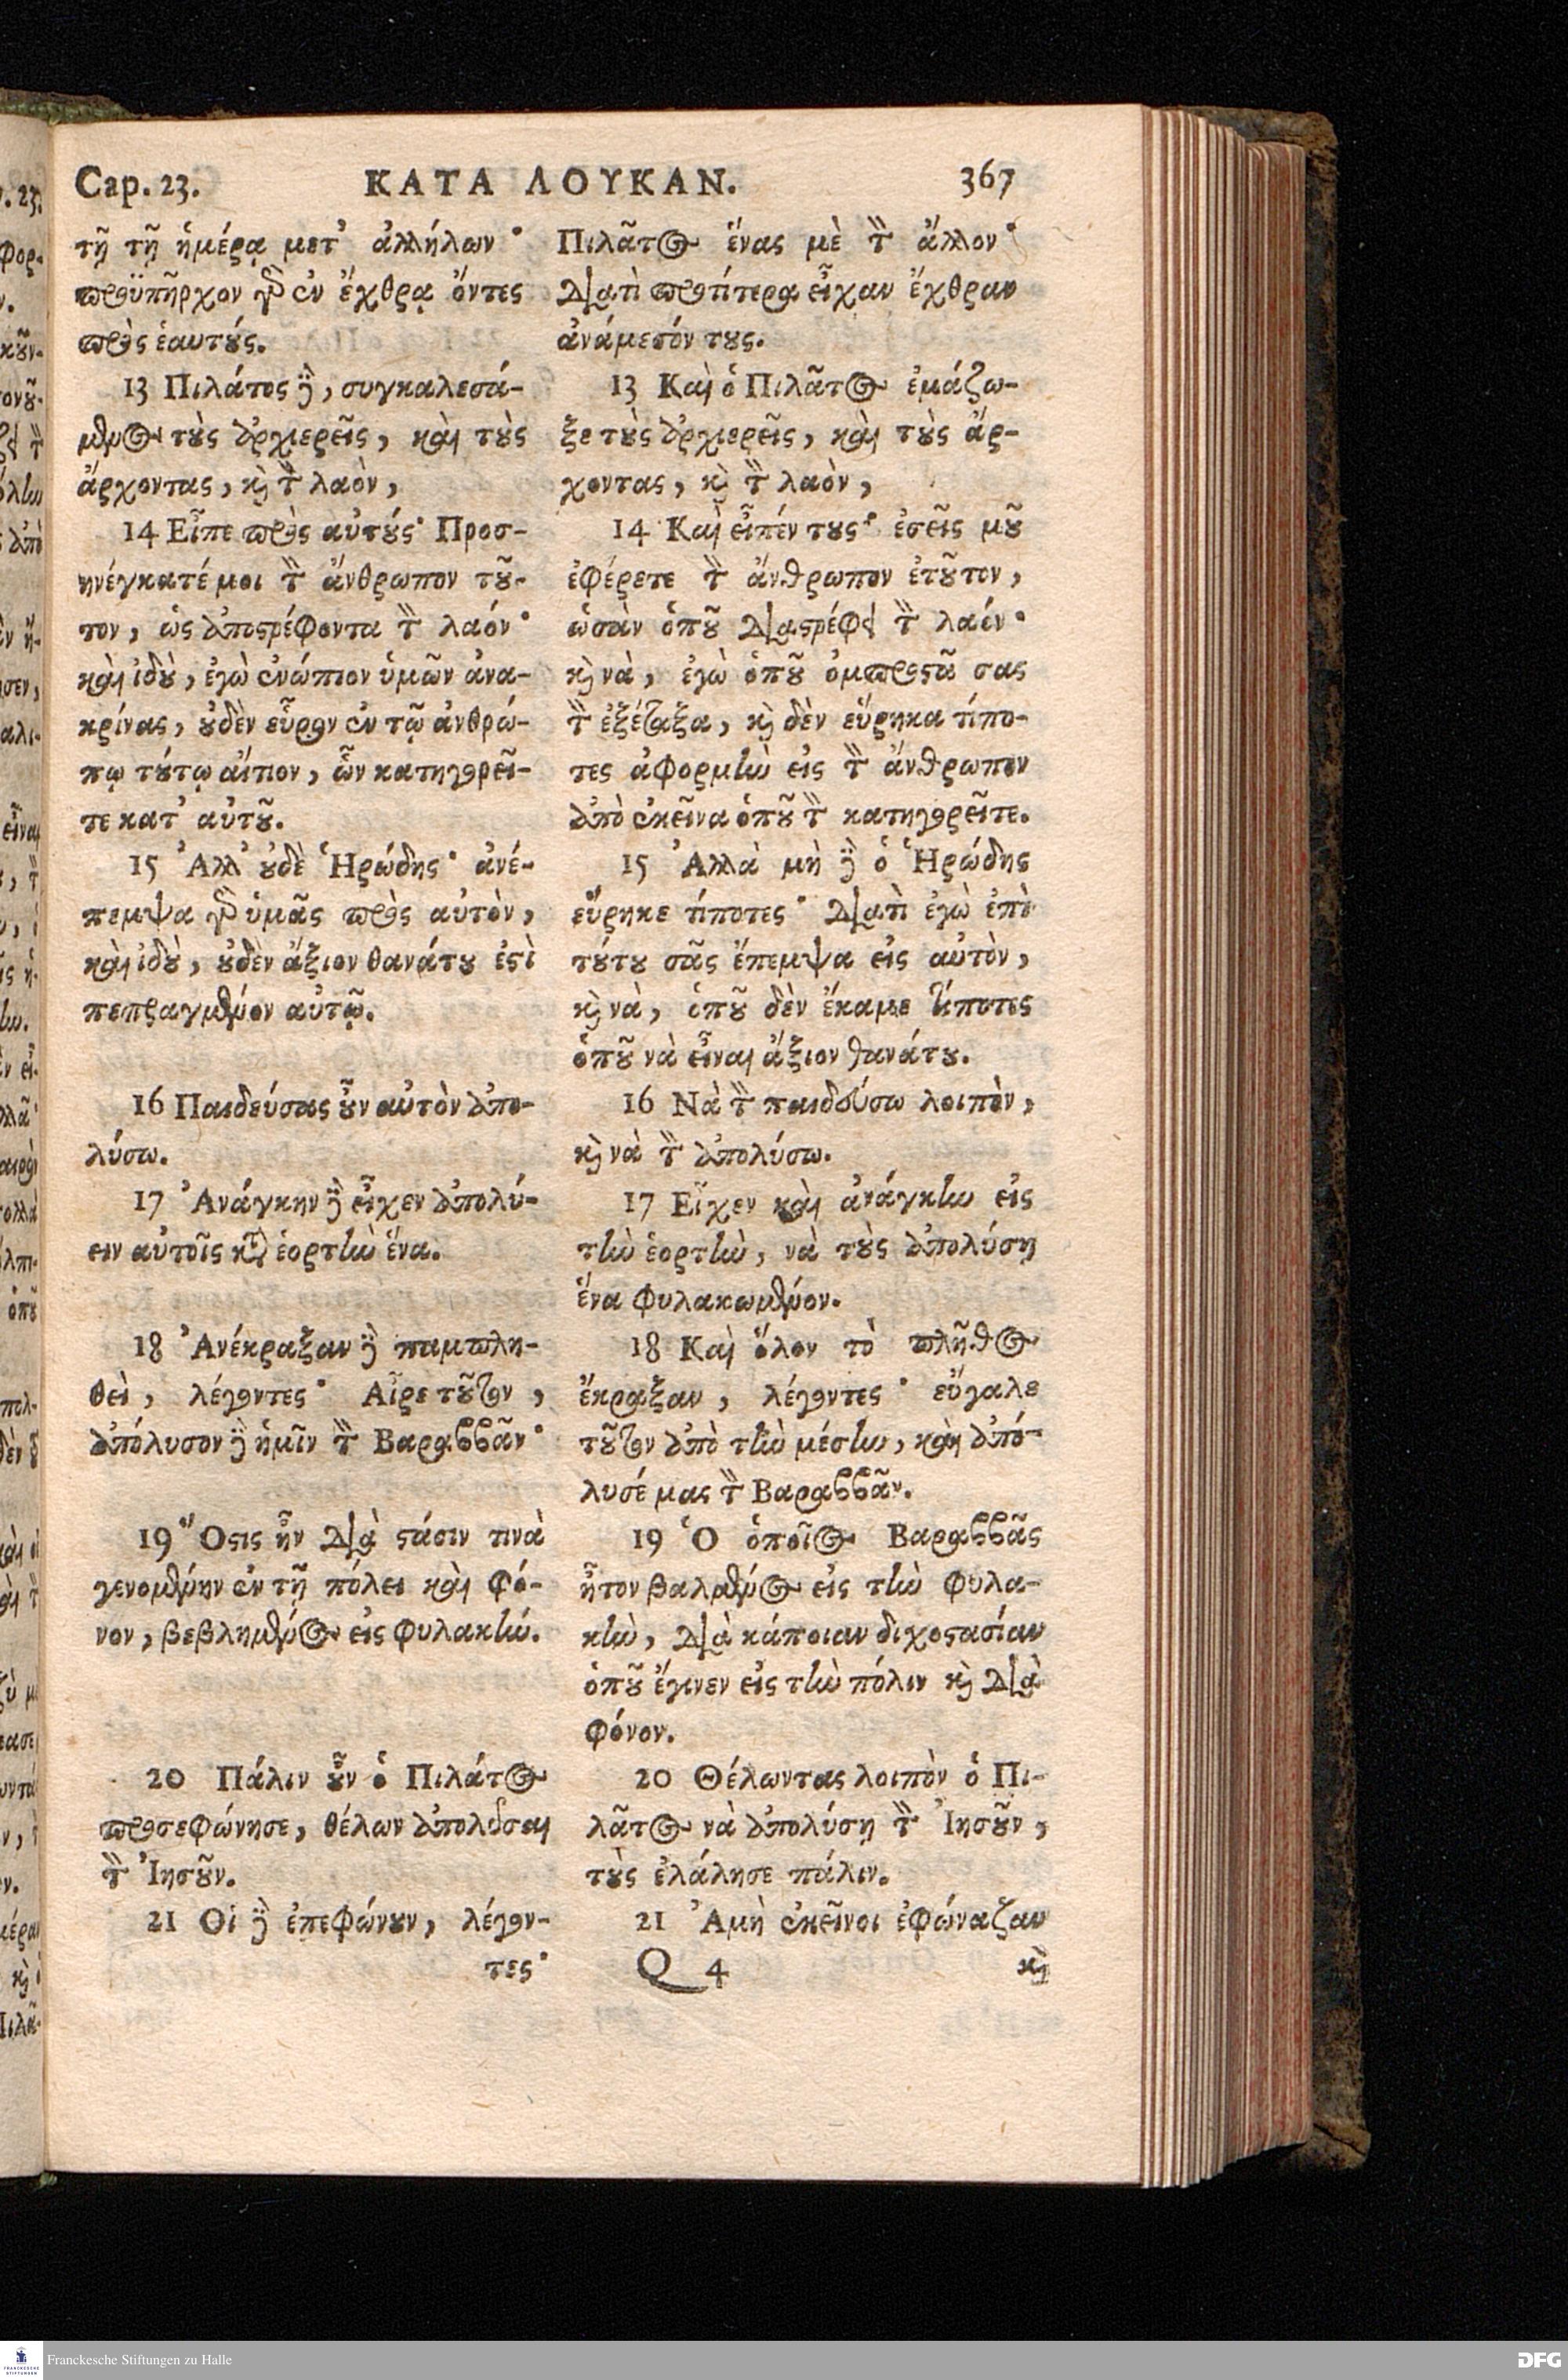 Cap. 23. ΚΑΤΑ ΛΟΥΚΑΝ. 367
τῇ τῇ ἡμέρᾳ μετ᾽ ἀλλήλων·
προϋπῆρχον γὸ ἐν ἔχθρᾳ ὄντες
πρὸς ἑαυτȣ́ς.
13 Πιλάτος ϳ̀, συγκαλεσά-
μενος τȣ̀ς ἀρχιερεῖς, καὶ τȣ̀ς
ἄρχοντας, κὶ τ̀ λαὸν,
14 Εἶπε πρὸς αὐτȣ́ς· Προσ-
ηνέγκατέ μοι τ̀ ἄνθρωπον τȣ͂-
τον, ὡς ἀποϛρέφοντα τ̀ λαόν·
καὶ ἰδȣ̀, ἐγὼ ἐνώπιον ὑμῶν ἀνα-
κρίνας, ȣ̓δὲν εὗρον ἐν τῷ ἀνθρώ-
πῳ τȣ́τῳ αἴτιον, ὧν κατηγορεῖ-
τε κατ᾽ αὐτȣ͂.
15 Ἀλλ᾽ ȣ̓δὲ Ἡρώδης· ἀνέ-
πεμψα γὸ ὑμᾶς πρὸς αὐτὸν,
καὶ ἰδȣ̀, ȣ̓δὲν ἄξιον θανάτȣ ἐϛὶ
πεπραγμένον αὐτῷ.
16 Παιδεύσας ȣ̓͂ν αὐτὸν ἀπο-
λύσω.
17 Ἀνάγκην ϳ̀ εἶχεν ἀπολύ-
ειν αὐτοῖς κτ̀ ἑορτὴν ἕνα.
18 Ἀνέκραξαν ϳ̀ παμπλη-
θεὶ, λέγοντες· Αἶρε τȣ͂τον,
ἀπόλυσον ϳ̀ ἡμῖν τ̀ Βαραββᾶν·
19 Ὅϛις ἦν διὰ ϛάσιν τινὰ
γενομένην ἐν τῇ πόλει καὶ φό-
νον, βεβλημένος εἰς φυλακήν.
20 Πάλιν ȣ̓͂ν ὁ Πιλάτος
προσεφώνησε, θέλων ἀπολῦσαι
τ̀ Ἰησȣ͂ν.
21 Οἱ ϳ̀ ἐπεφώνȣν, λέγον-
τες·
Πιλᾶτος ἕνας μὲ τ̀ ἄλλον·
διατὶ προτίτερα εἶχαν ἔχθραν
ἀνάμεσόν τȣς.
13 Καὶ ὁ Πιλᾶτος ἐμάζω-
ξε τȣ̀ς ἀρχιερεῖς, καὶ τȣ̀ς ἄρ-
χοντας, κὶ τ̀ λαὸν,
14 Καὶ εἶπέν τȣς· ἐσεῖς μȣ͂
ἐφέρετε τ̀ ἄνθρωπον ἐτȣ͂τον,
ὡσὰν ὁπȣ͂ διαϛρέφει τ̀ λαόν·
κὶ νὰ, ἐγὼ ὁπȣ͂ ὀμπροϛῶ σας
τ̀ ἐξέταξα, κὶ δὲν εὕρηκα τίπο-
τες ἀφορμὴν εἰς τ̀ ἄνθρωπον
ἀπὸ ἐκεῖνα ὁπȣ͂ τ̀ κατηγορεῖτε.
15 Ἀλλὰ μὴ ϳ̀ ὁ Ἡρώδης
εὕρηκε τίποτες· διατὶ ἐγὼ ἐπὶ
τȣ́τȣ σᾶς ἔπεμψα εἰς αὐτὸν,
κὶ νὰ, ὁπȣ͂ δὲν ἔκαμε τίποτες
ὁπȣ͂ νὰ εἶναι ἄξιον θανάτȣ.
16 Νὰ τ̀ παιδεύσω λοιπὸν,
κὶ νὰ τ̀ ἀπολύσω.
17 Εἶχεν καὶ ἀνάγκην εἰς
τὴν ἑορτὴν, νὰ τȣ̀ς ἀπολύσῃ
ἕνα φυλακωμένον.
18 Καὶ ὅλον τὸ πλῆθος
ἔκραξαν, λέγοντες· εὔγαλε
τȣ͂τον ἀπὸ τὴν μέσην, καὶ ἀπό-
λυσέ μας τ̀ Βαραββᾶν.
19 Ὁ ὁποῖος Βαραββᾶς
ἦτον βαλμένος εἰς τὴν φυλα-
κὴν, διὰ κάποιαν διχοϛασίαν
ὁπȣ͂ ἔγινεν εἰς τὴν πόλιν κὶ διὰ
φόνον.
20 Θέλωντας λοιπὸν ὁ Πι-
λᾶτος νὰ ἀπολύσῃ τ̀ Ἰησȣ͂ν,
τȣ̀ς ἐλάλησε πάλιν.
21 Ἀμὴ ἐκεῖνοι ἐφώναζαν
Q 4 κὶ
Franckesche Stiftungen zu Halle
DFG